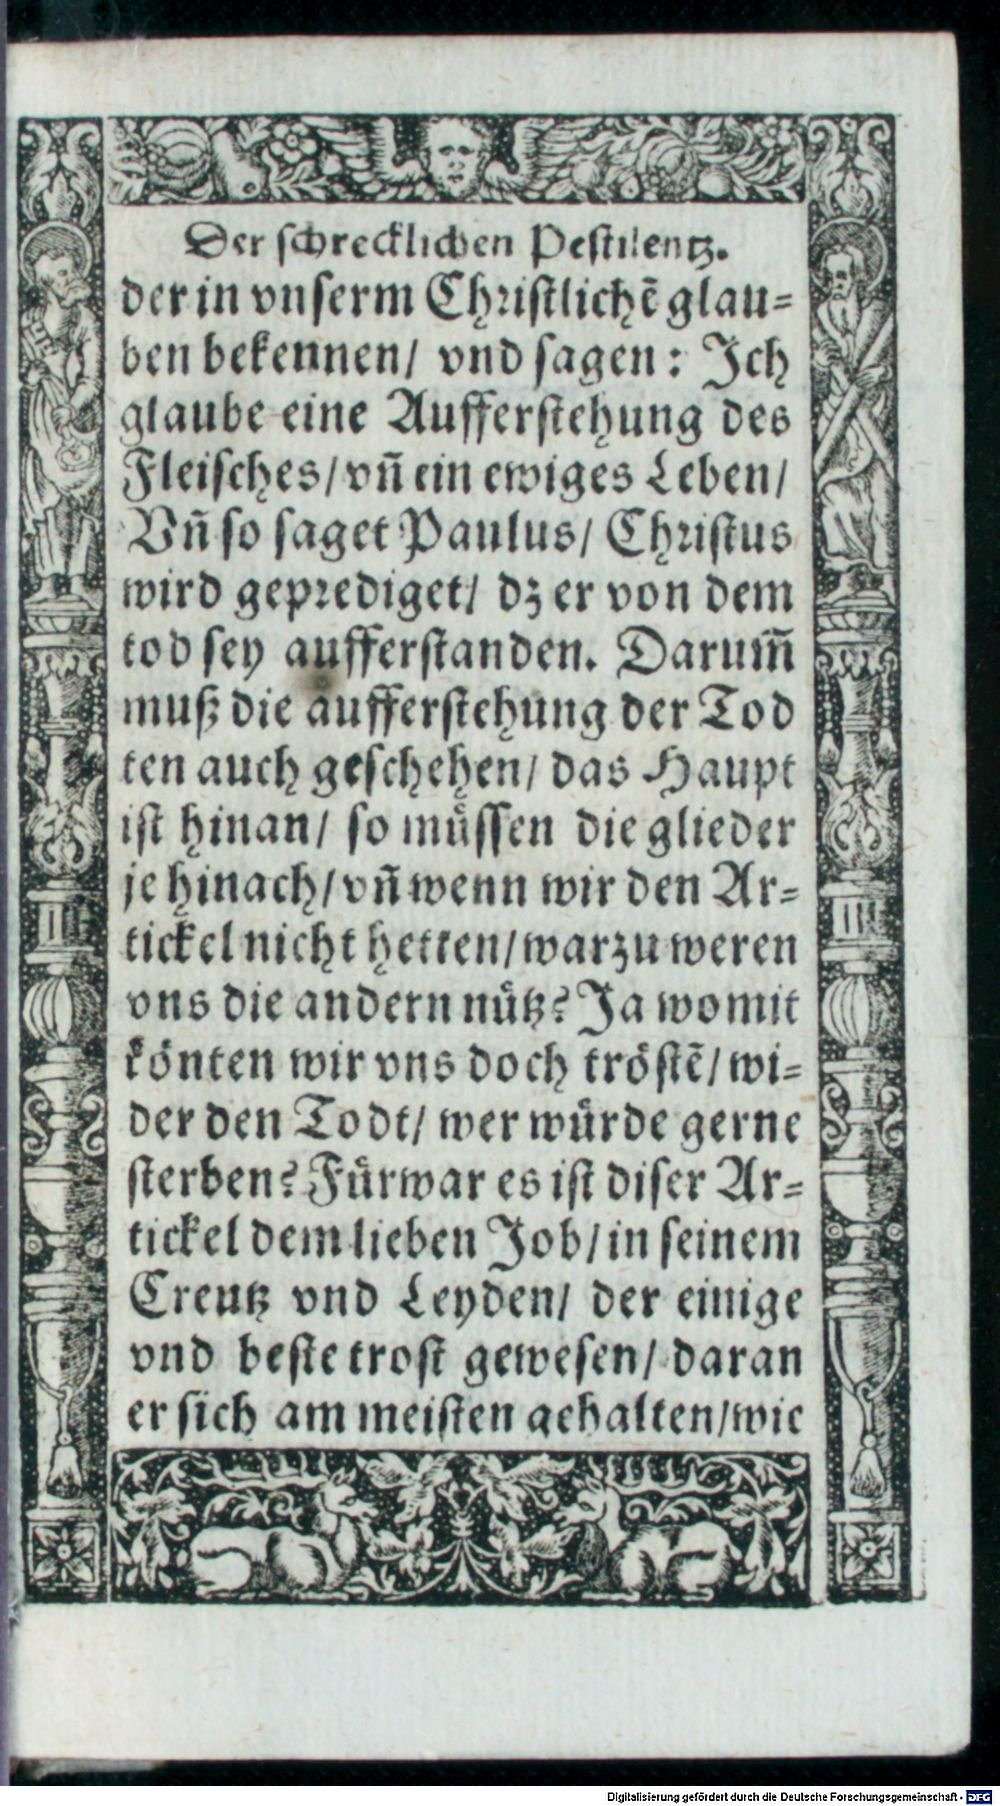 Der schrecklichen Pestilentz.
der in vnserm Christlichẽ glau=
ben bekennen/ vnd sagen: Ich
glaube eine Aufferstehung des
Fleisches/ vñ ein ewiges Leben/
Vñ so saget Paulus/ Christus
wird geprediget/ dz er von dem
tod sey aufferstanden. Darum̃
muß die aufferstehung der Tod
ten auch geschehen/ das Haupt
ist hinan/ so müssen die glieder
je hinach/ vñ wenn wir den Ar=
tickel nicht hetten/ warzu weren
vns die andern nütz? Ja womit
könten wir vns doch tröstẽ/ wi=
der den Todt/ wer würde gerne
sterben? Fürwar es ist diser Ar=
tickel dem lieben Job/ in seinem
Creutz vnd Leyden/ der einige
vnd beste trost gewesen/ daran
er sich am meisten gehalten/ wie
Digitalisierung gefördert durch die Deutsche Forschungsgemeinschaft - DFG